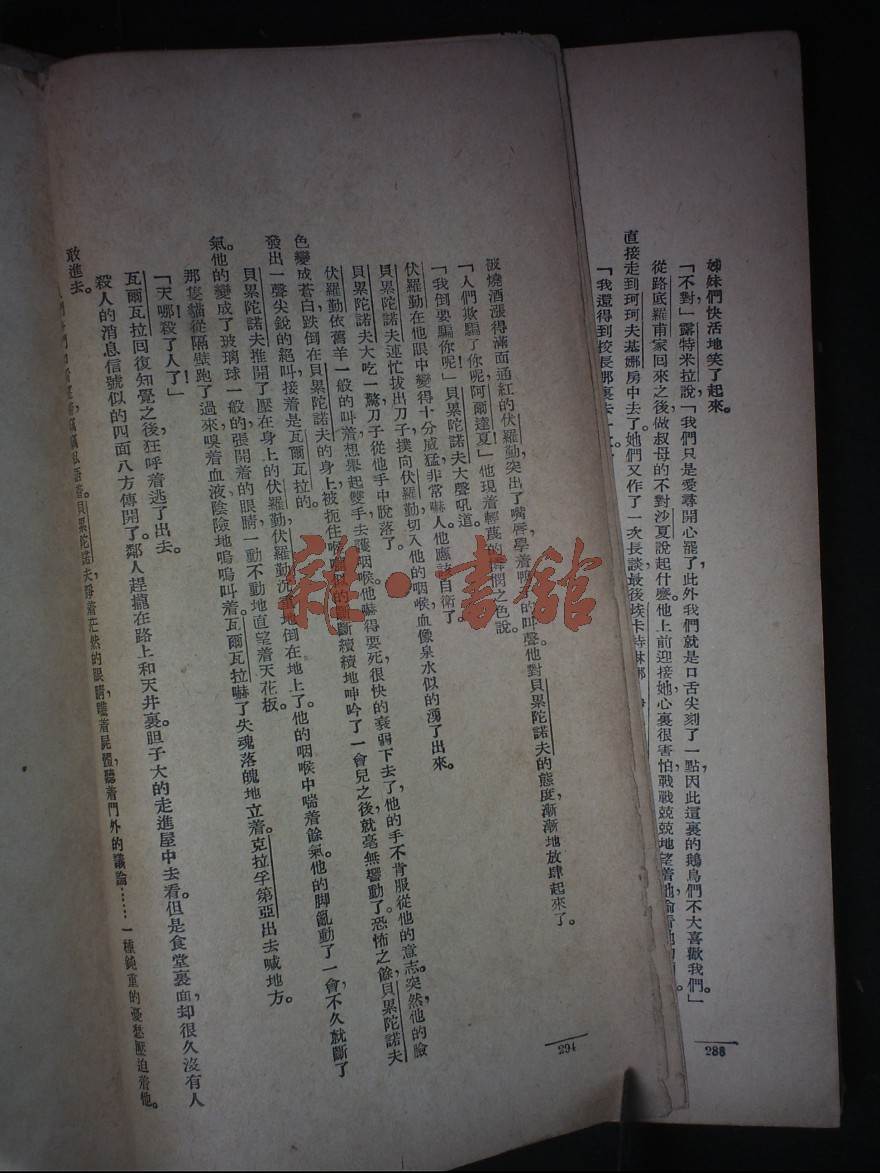 姊妹們快活地笑了起來。
「不對」露特米拉說，「我們只是愛尋開心罷了，此外我們就是口舌尖刻了一點因此這裏的鵝鳥們不大喜歡我們。」
從路底羅甫家回來之後，做叔母的不對沙夏說起什麼。他上前迎接她，心裏很害怕，戰戰兢兢地望着她，偷看她的
直接走到珂珂夫基娜房中去了。她們又作了一次長談，最後埃卡特
「我還得到校長那裏去一
286
被燒酒漲得滿面通紅的伏羅勤，突出了嘴唇學着鴨的叫聲。他對貝累陀諾夫的態度，漸漸地放肆起來了。
「人們欺騙了你呢，阿爾達夏！」他現着輕蔑的憐憫之色說。
「我倒要騙你呢！」貝累陀諾夫大聲吼道。
伏羅勤在他眼中變得十分威猛，非常嚇人。他應該自衛了。
貝累陀諾夫連忙拔出刀子，撲向伏羅勤，切入他的咽喉。血像泉水似的湧了出來。
貝累陀諾夫大吃一驚。刀子從他手中脫落了。
伏羅勤依舊羊一般的叫着，想舉起雙手去護咽喉。他嚇得要死，很快的衰弱下去了，他的手不肯服從他的意志。突然，他的臉
色變成蒼白，跌倒在貝累陀諾夫的身上。被扼住喉嚨似的斷斷續續地呻吟了一會兒之後，就毫無響動了。恐怖之餘，貝累陀諾夫
發出一聲尖銳的絕叫，接着是瓦爾瓦拉的。
貝累陀諾夫推開了壓在身上的伏羅勤，伏羅勤沉重地倒在地上了。他的咽喉中喘着餘氣。他的脚亂動了一會，不久就斷了
氣。他的變成了玻璃球一般的張開着的眼睛，一動不動地直望着天花板。
那隻貓從隔壁跑了過來，嗅着血液，陰險地嗚嗚叫着。瓦爾瓦拉嚇了失魂落魄地立着。克拉孚第亞出去喊地方。
「天哪！殺了人了！」
瓦爾瓦拉回復知覺之後，狂呼着逃了出去。
殺人的消息信號似的四面八方傳開了。鄰人趕攏在路上和天井裏。胆子大的走進屋中去看。但是食堂裏面却很久沒有人
敢進去。
貝累陀諾夫睜着茫然的眼睛，瞧着屍體，聽着門外的議論……一種鈍重的憂愁壓迫着他。
294
雜·書館